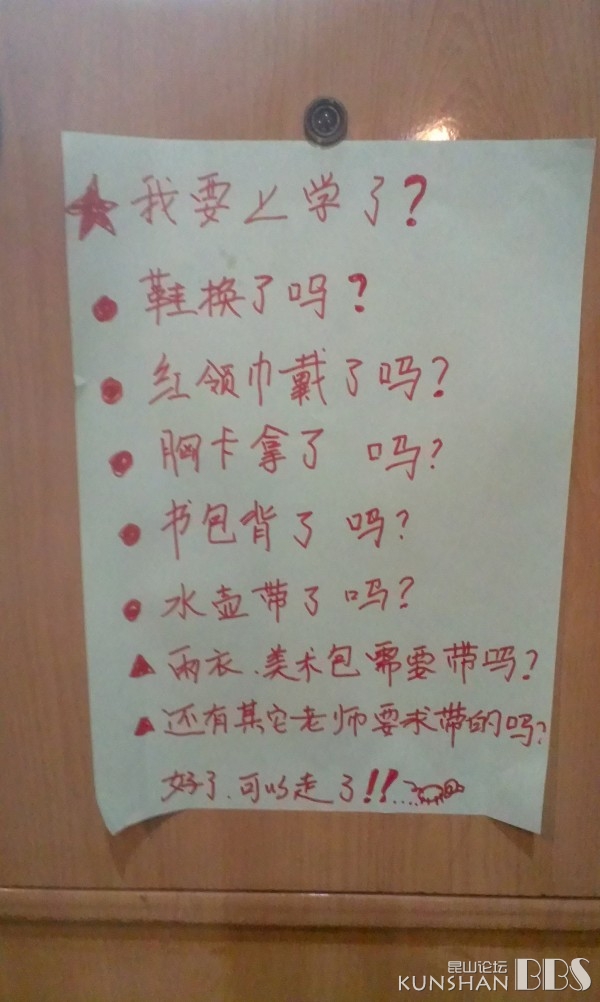 ★我要上学了?
●鞋换了吗?
●红领巾戴了吗?
●胸卡拿了 吗?
●书包背了 吗?
●水壶带了吗?
▲雨衣、美术包需要带吗?
▲还有其它老师要求带的吗?
好了、可以走了!!....
昆山论坛
KUNSHAN BBS